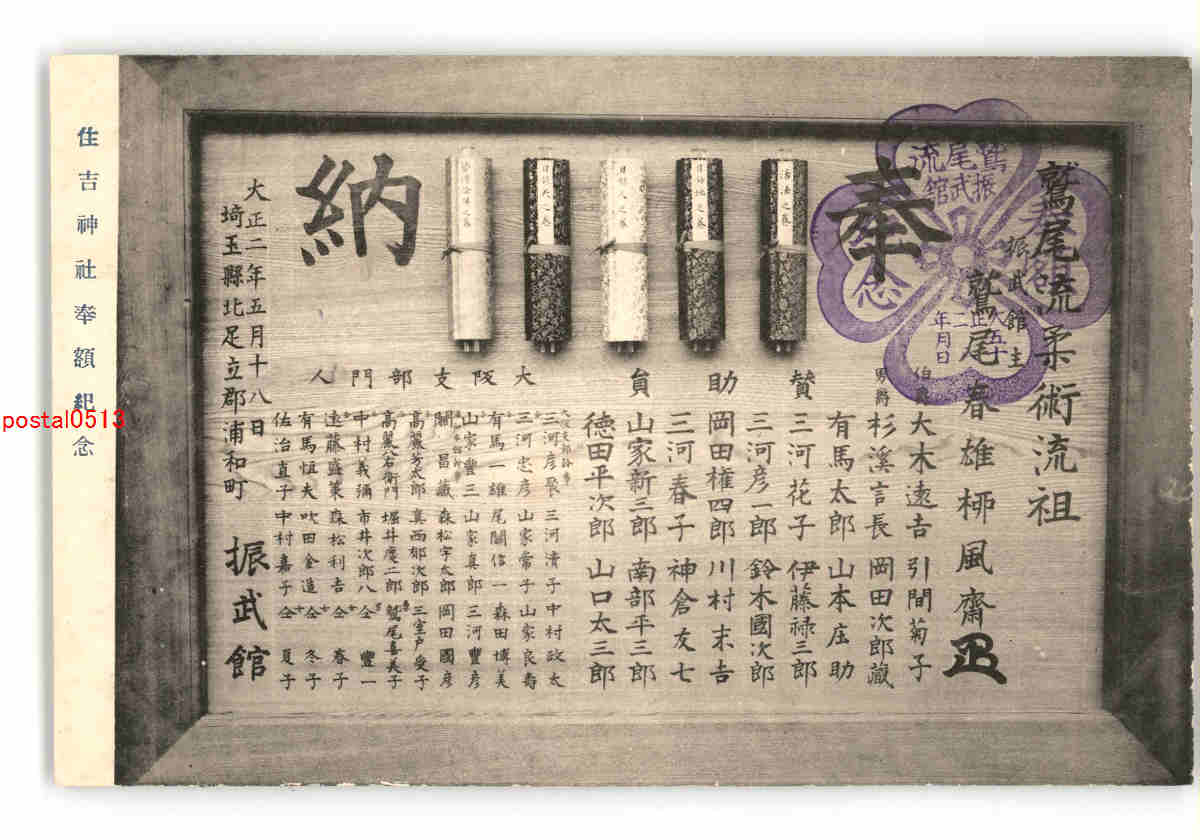 鷲尾流柔術流祖
振武館主
鷲尾春雄
風齋
奉
納
賛助員
伯爵 大木遠吉 引間菊子
男爵 杉溪言長 岡田次郎藏
有馬太郎 山本庄助
三河花子 伊藤禄三郎
三河彦一郎 鈴木國次郎
岡田権四郎 川村末吉
三河春子 神倉友七
山家新三郎 南部平三郎
徳田平次郎 山口太三郎
大阪支部門人
三河彦聚 三河清子 中村政太
三河忠彦 山家常子 山家良壽
有馬一雄 尾關信一 森田博美
山家豊三 山家真郎 三河豊彦
關昌藏 森松宇太郎 岡田國彦
高麗芳太郎 真西郁次郎 三室戸愛子
高麗谷衛門 堀井慶二郎 鷲尾喜美子
中村義彌 市井次郎八 仝 豊一
遠藤盛策 森松利吉 仝 春子
有馬恒夫 吹田金造 仝 冬子
佐治直子 中村嘉子 仝 夏子
大正二年五月十八日
埼玉縣北足立郡浦和町
振武館
住吉神社奉額紀念
鷲尾流
振武館
念
postal0513